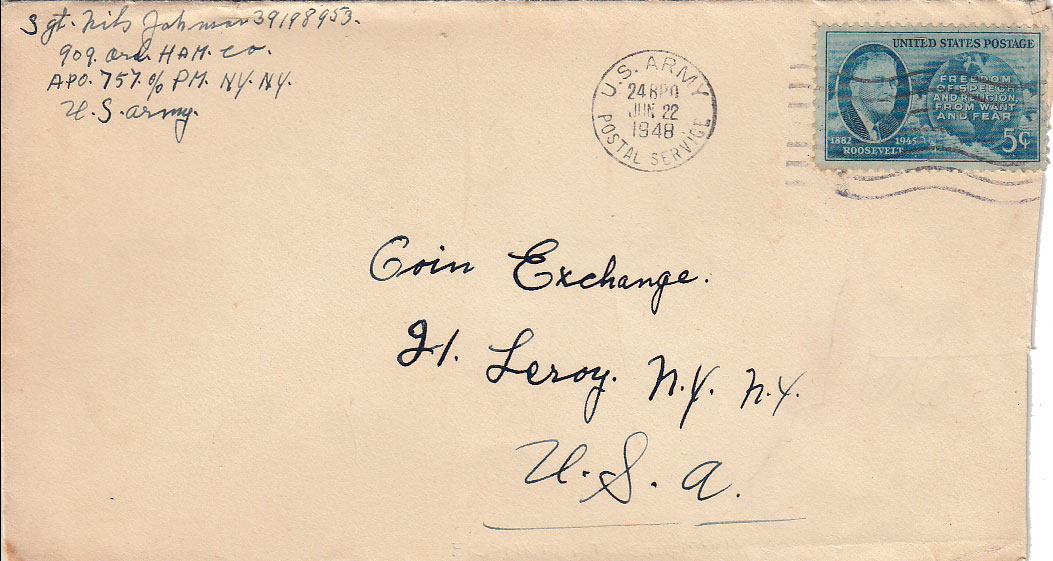 Sgt. Nils Johnson 39198953.
909. Ord. HAM. Co.
APO. 757. c/o PM. NY. NY.
U. S. Army.
U.S. ARMY
24 BPO
JUN 22
1948
POSTAL SERVICE
UNITED STATES POSTAGE
FREEDOM
OF SPEECH
AND RELIGION,
FROM WANT
AND FEAR
1882 1945
ROOSEVELT
5¢
Coin Exchange.
21. Leroy. N.Y. N.Y.
U. S. A.